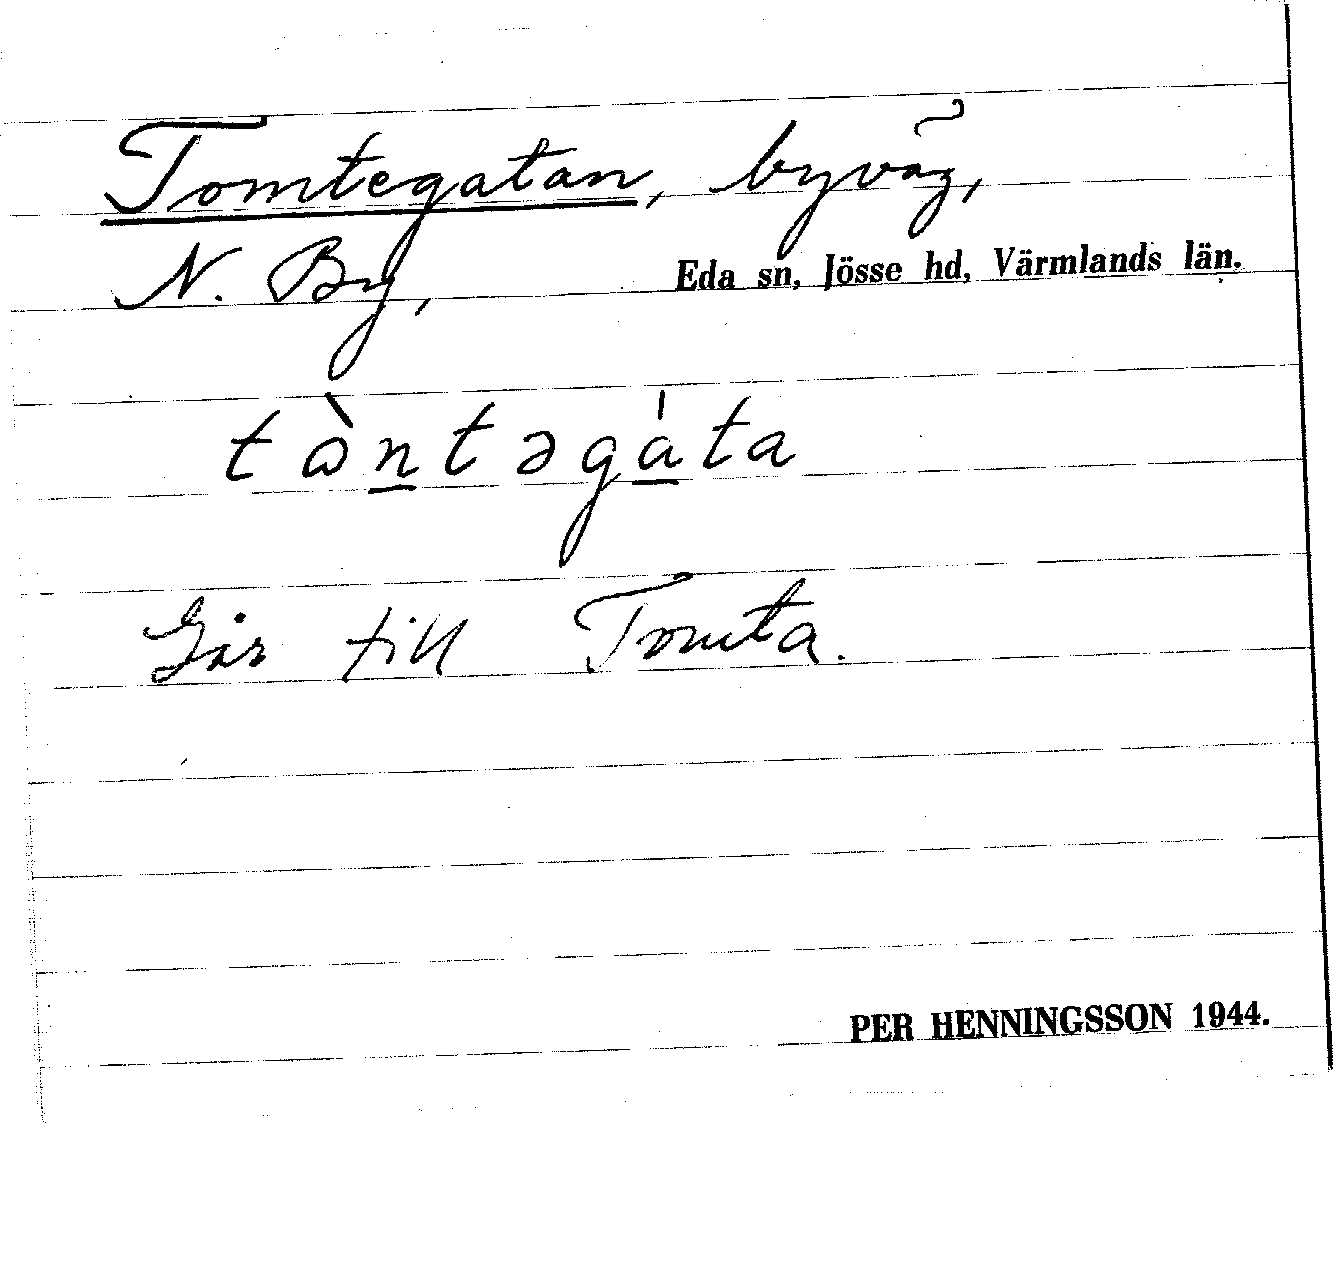 Tomtegatan, byväg,
N. By, Eda sn, Jösse hd, Värmlands län.
tὼn̲təgá̲ta
Går till Tomta.
PER HENNINGSSON 1944.